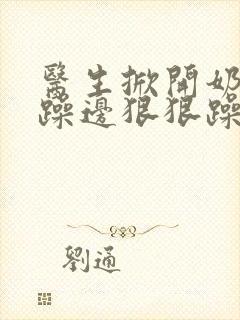 醫生掀開奶
躁邊狠狠躁
劉通